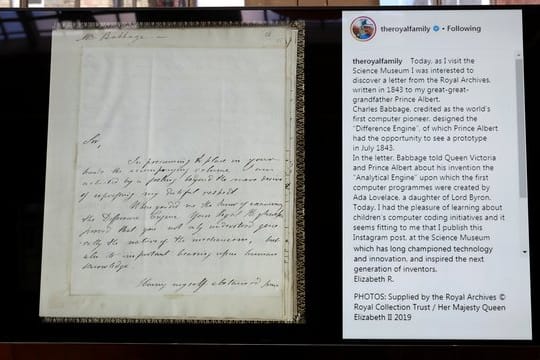 Mr Babbage
Sir,
In presuming to place in your
hands the accompanying volume I am
actuated by a feeling beyond the mere desire
of expressing my dutiful respect.
When you did me the honor of examining
the Difference Engine Your Royal Highness
proved that you not only understood
the nature of the mechanism, but
also its important bearing upon human
knowledge.
Having myself abstained from
theroyalfamily • Following
theroyalfamily Today, as I visit the
Science Museum I was interested to
discover a letter from the Royal Archives,
written in 1843 to my great-great-
grandfather Prince Albert.
Charles Babbage, credited as the world's
first computer pioneer, designed the
"Difference Engine", of which Prince Albert
had the opportunity to see a prototype
in July 1843.
In the letter, Babbage told Queen Victoria
and Prince Albert about his invention the
"Analytical Engine" upon which the first
computer programmes were created by
Ada Lovelace, a daughter of Lord Byron.
Today, I had the pleasure of learning about
children's computer coding initiatives and it
seems fitting to me that I publish this
Instagram post, at the Science Museum
which has long championed technology
and innovation, and inspired the next
generation of inventors.
Elizabeth R.
PHOTOS: Supplied by the Royal Archives ©
Royal Collection Trust / Her Majesty Queen
Elizabeth II 2019